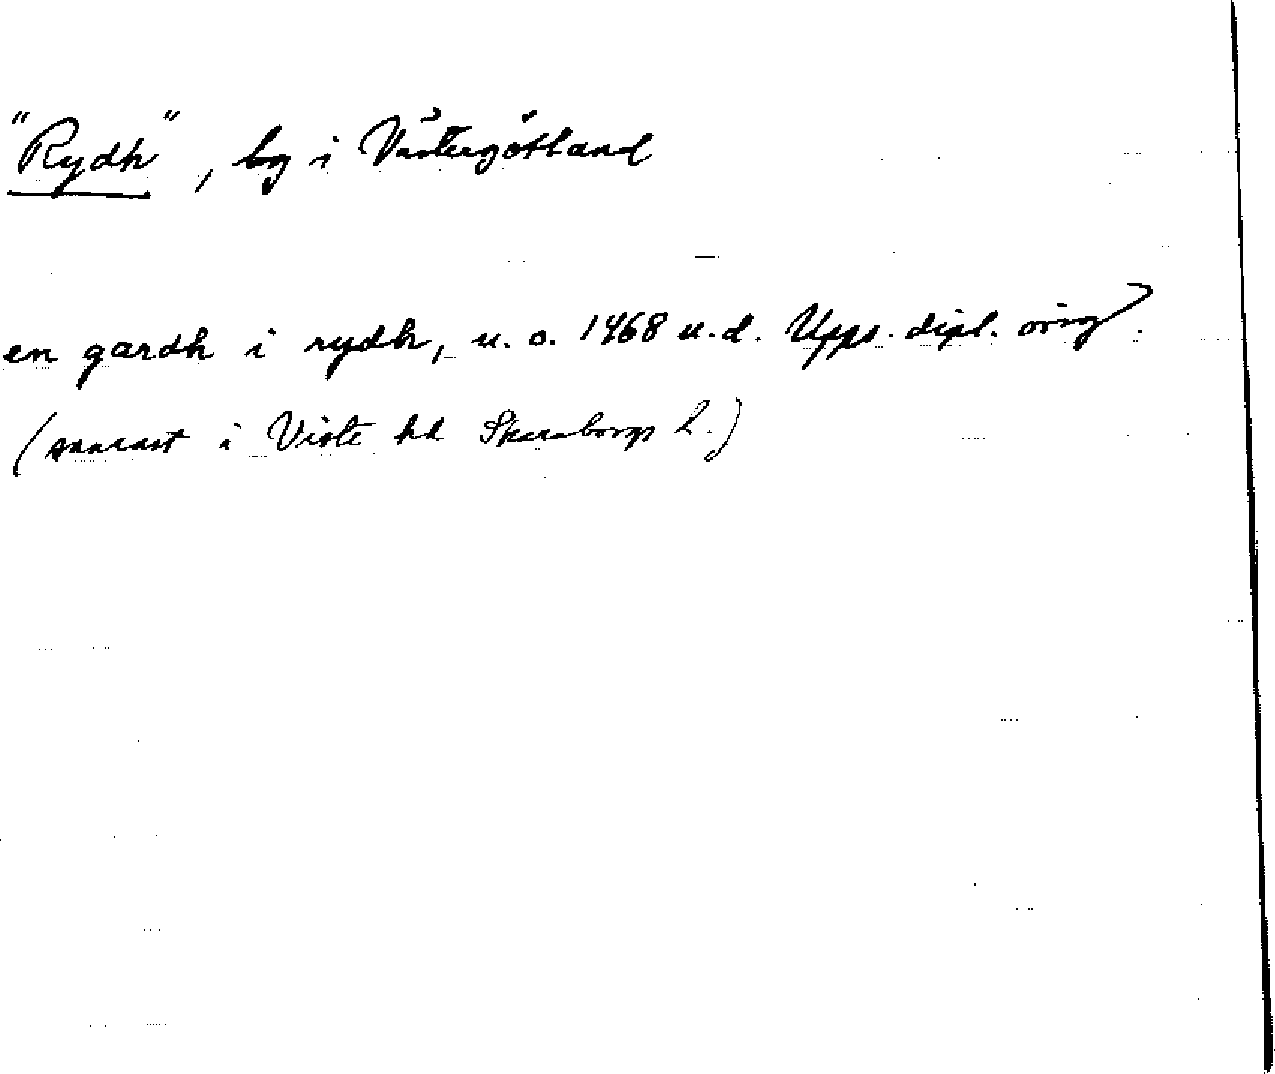 "Rydh", by i Västergötland
en gardh i rydh, u. o. 1468 u.d. Upps. dipl. orig.
(sannast i Viste hd Skaraborgs l.)